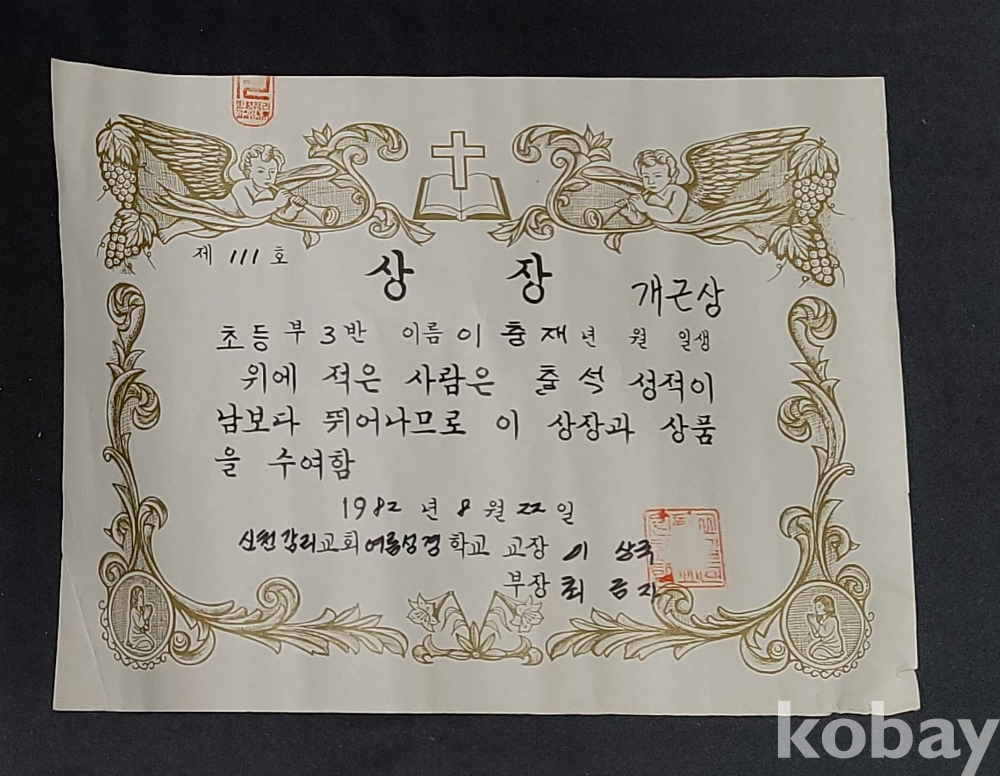 제 111 호
상 장
개근상
초등부 3반 이름 이충재 년 월 일생
위에 적은 사람은 출석 성적이
남보다 뛰어나므로 이 상장과 상품
을 수여함
1982 년 8 월 22 일
신천감리교회 여름성경학교 교장 이상국
부장 최금자
kobay